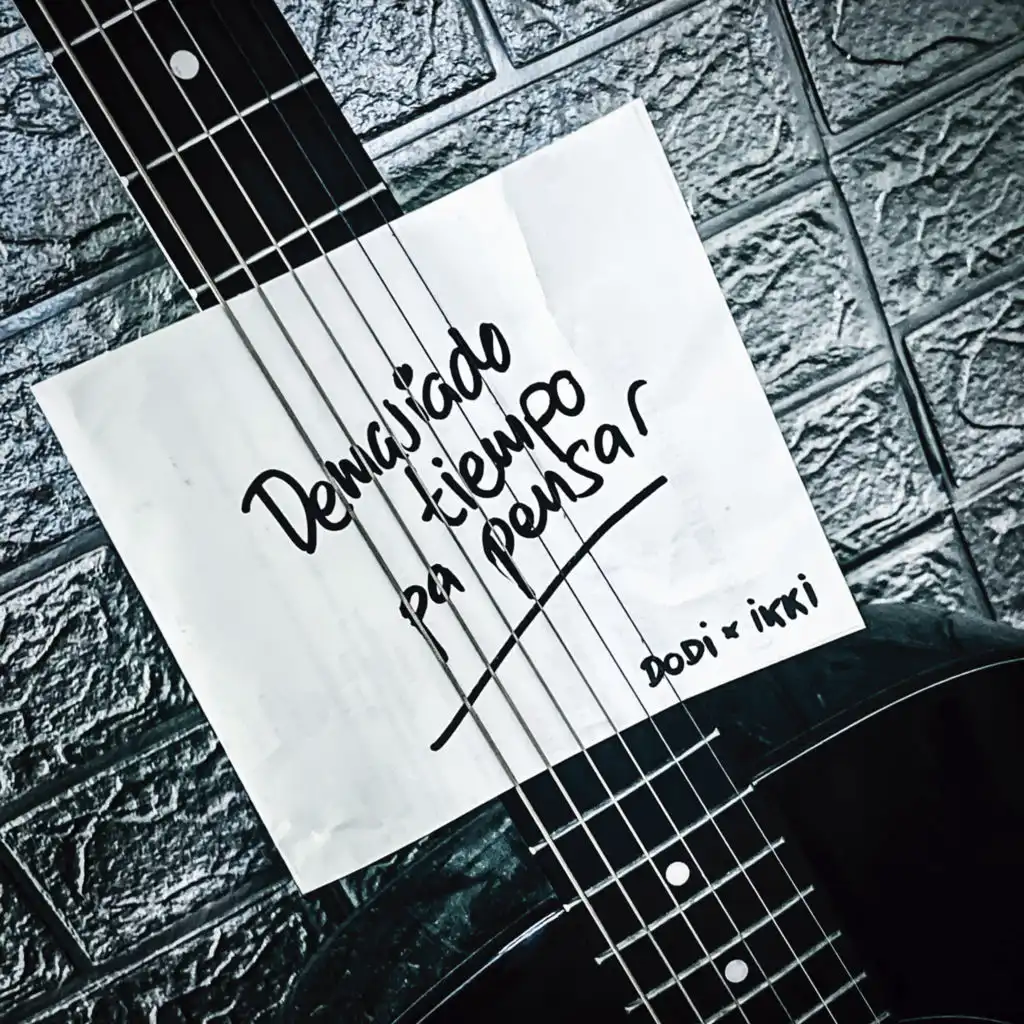 Demasiado
tiempo
pa pensar
DODi x iKKi